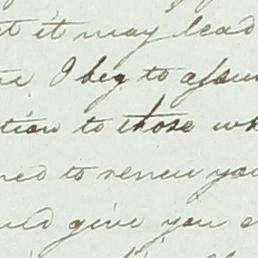 t it may lead
I beg to assu
tion to those wh
ned to renew you
uld give you a